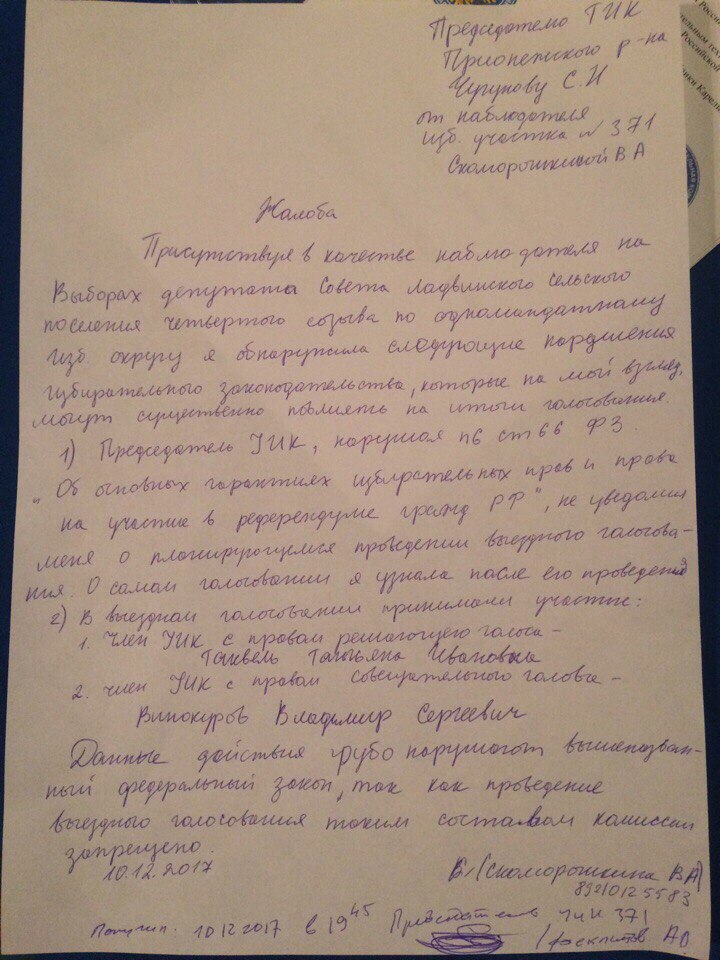 Председателю ТИК
Прионежского р-на
Чугунову С.И
от наблюдателя
изб. участка № 371
Скоморошкиной В А
Жалоба
Присутствуя в качестве наблюдателя на
Выборах депутата Совета Ладвинского сельского
поселения четвертого созыва по одномандатному
изб. округу я обнаружила следующие нарушения
избирательного законодательства, которые на мой взгляд,
могут существенно повлиять на итоги голосования.
1) Председатель УИК, нарушая п6 ст 66 ФЗ
"Об основных гарантиях избирательных прав и права
на участие в референдуме гражд РФ", не уведомил
меня о планирующемся проведении выездного голосова-
ния. О самом голосовании я узнала после его проведения
2) В выездном голосовании принимали участие:
1. Член УИК с правом решающего голоса –
Татьяна Ивановна
2. член УИК с правом совещательного голоса –
Винокуров Владимир Сергеевич
Данные действия грубо нарушают вышеназван-
ный федеральный закон, так как проведение
выездного голосования таким составом комиссии
запрещено.
10.12.2017
(Скоморошкина В А)
89210125583
Получил. 10 12 2017 в 19 45 Председатель УИК 371